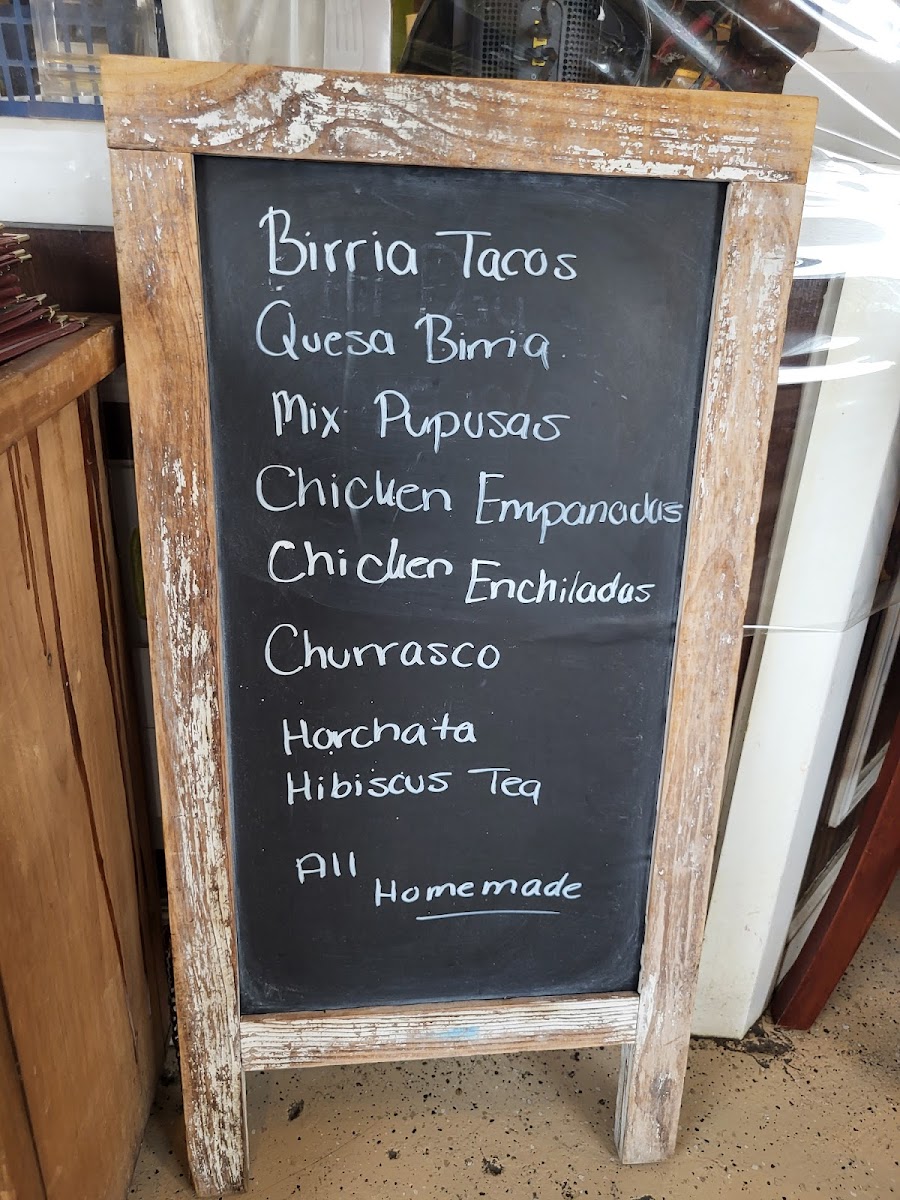 Birria Tacos
Quesa Birria
Mix Pupusas
Chicken Empanadas
Chicken Enchiladas
Churrasco
Horchata
Hibiscus Tea
All
Homemade